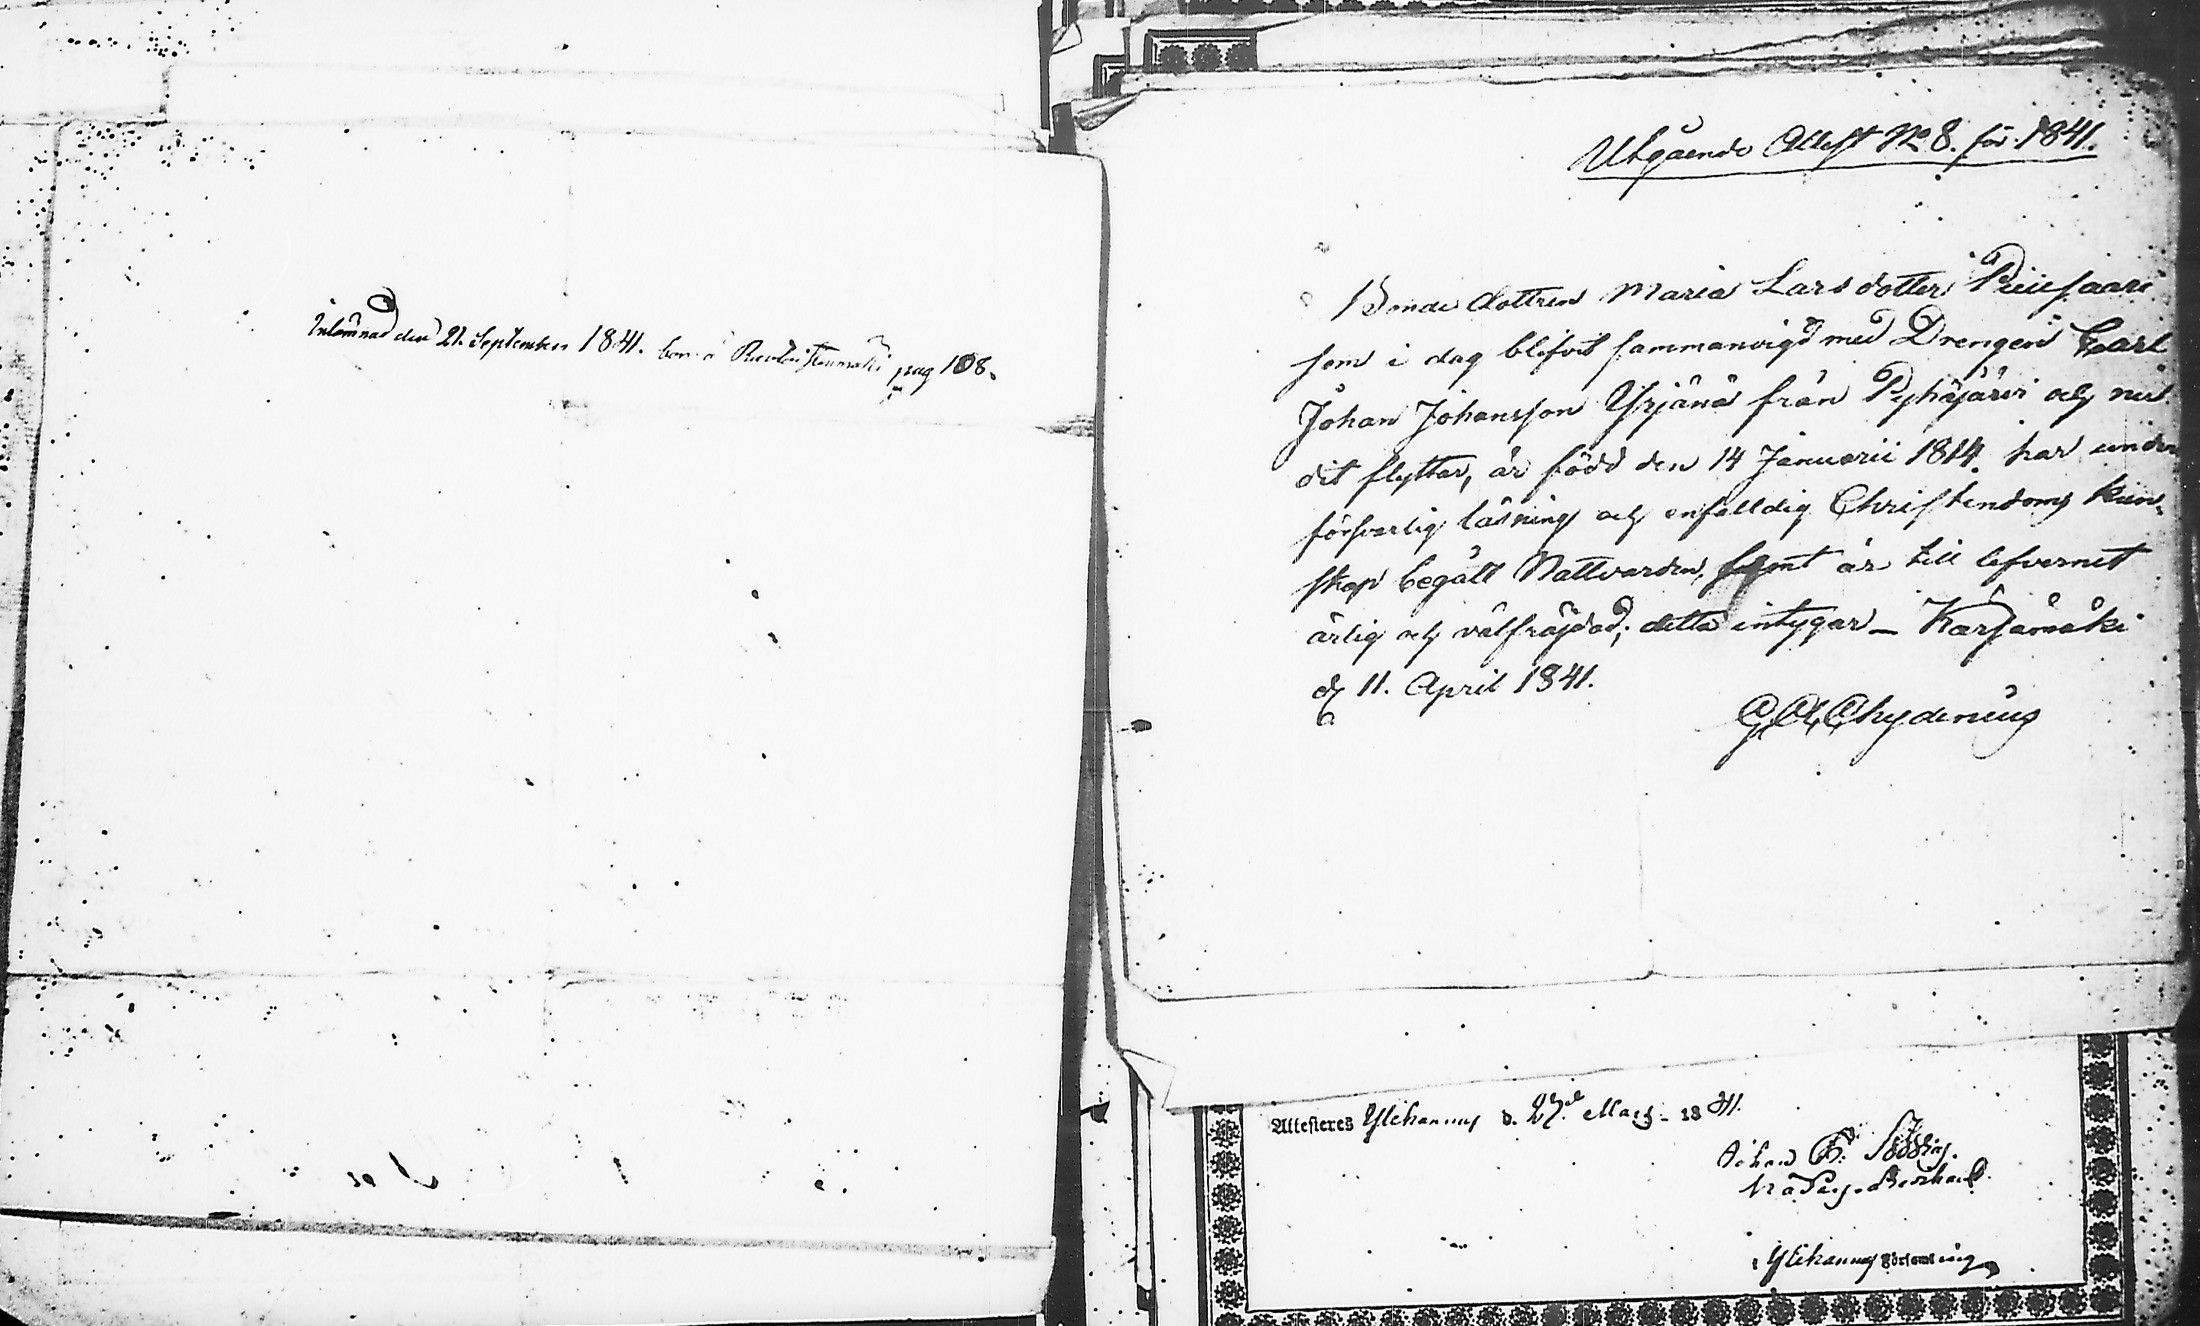 Inlämnad den 21. September 1841. pag 108.
Utgående Attest No 8. för 1841.
Bonde dottren Maria Larsdotter Piiesaari
som i dag blifvit sammanvigd med Drengen Carl
Johan Johansson Yrjänä från Pyhäjärvi och nu
dit flyttar, är född den 14 Januarii 1814. har under
försvarlig läsning och enfalldig Christendoms kun-
skap begått Nattvarden, samt är till lefvernet
ärlig och välfräjdad; detta intygar – Kärsämäki
d 11. April 1841.
G. A. Chydenius
Attesteres Ylikannus d. 27de Mars - 1841.
Johan
Ylikannus Församling